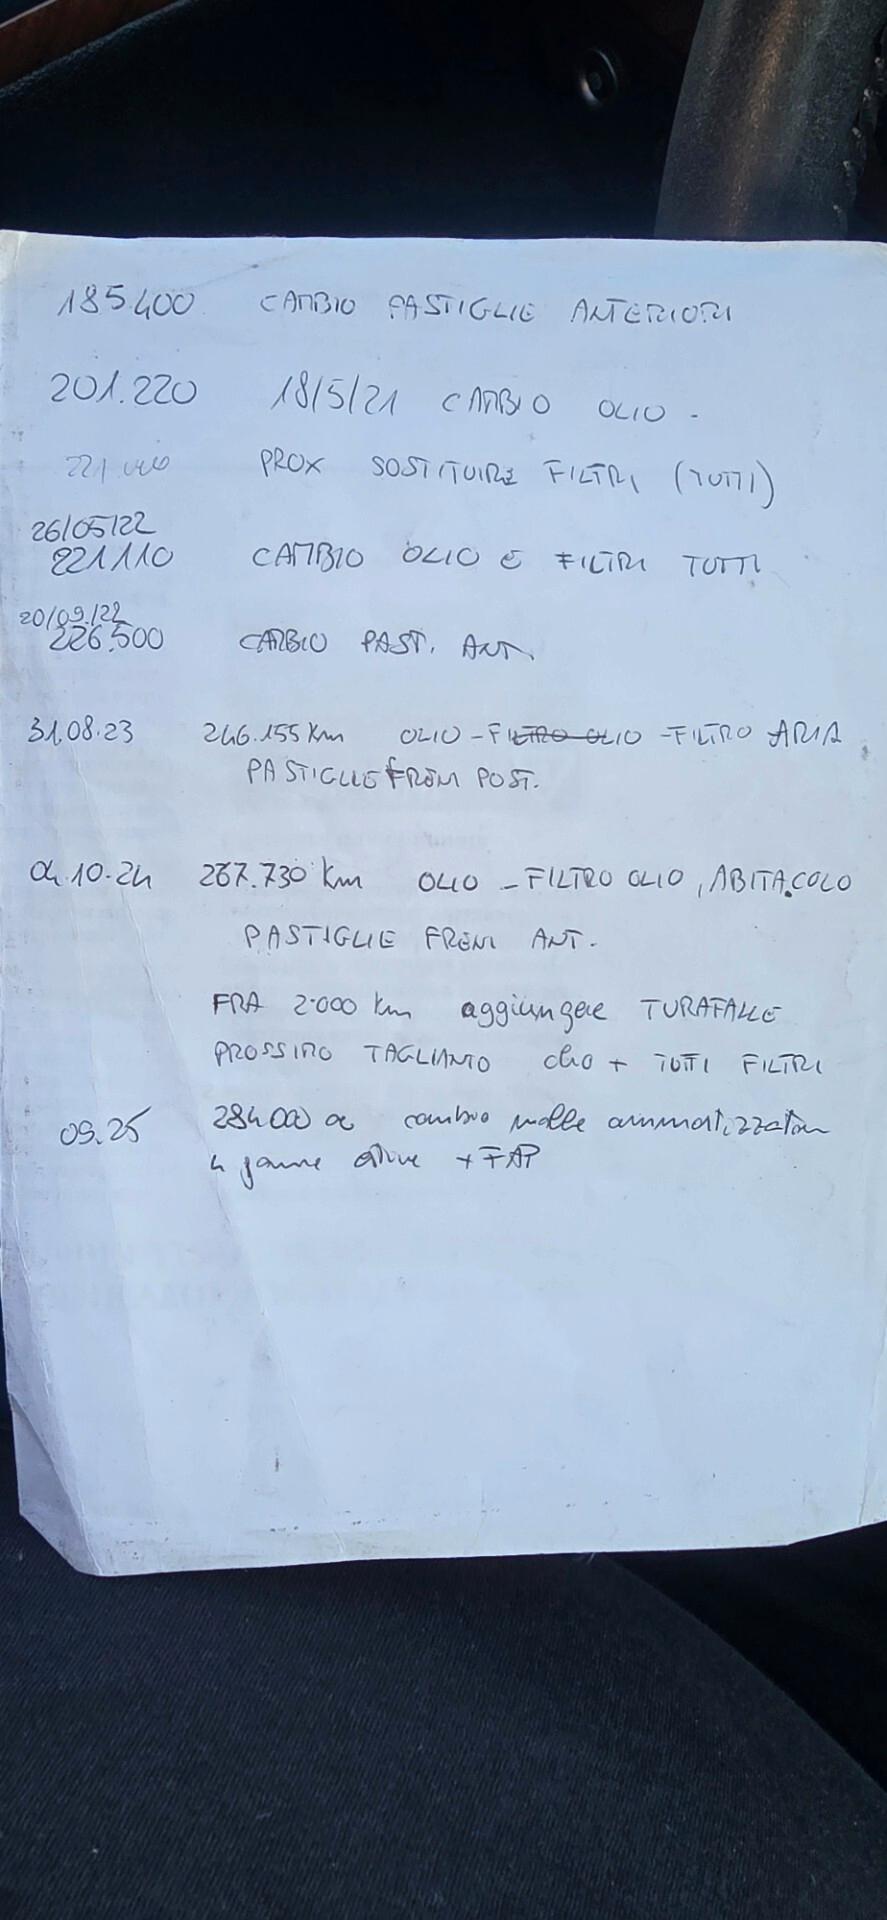 185400 CAMBIO PASTIGLIE ANTERIORI
201.220 18/5/21 CAMBIO OLIO -
221 000 PROX SOSTITUIRE FILTRI (TUTTI)
26/05/22
221110 CAMBIO OLIO E FILTRI TUTTI
20/09/22
226.500 CAMBIO PAST. ANT.
31.08.23 246.155 Km OLIO - FILTRO OLIO - FILTRO ARIA
PASTIGLIE FRENI POST.
04.10.24 267.730 Km OLIO - FILTRO OLIO, ABITACOLO
PASTIGLIE FRENI ANT.
FRA 2.000 Km aggiungere TURAFALLE
PROSSIMO TAGLIANDO olio + TUTTI FILTRI
09.25 284000 cambio molle ammortizzatori
4 gomme + FAP